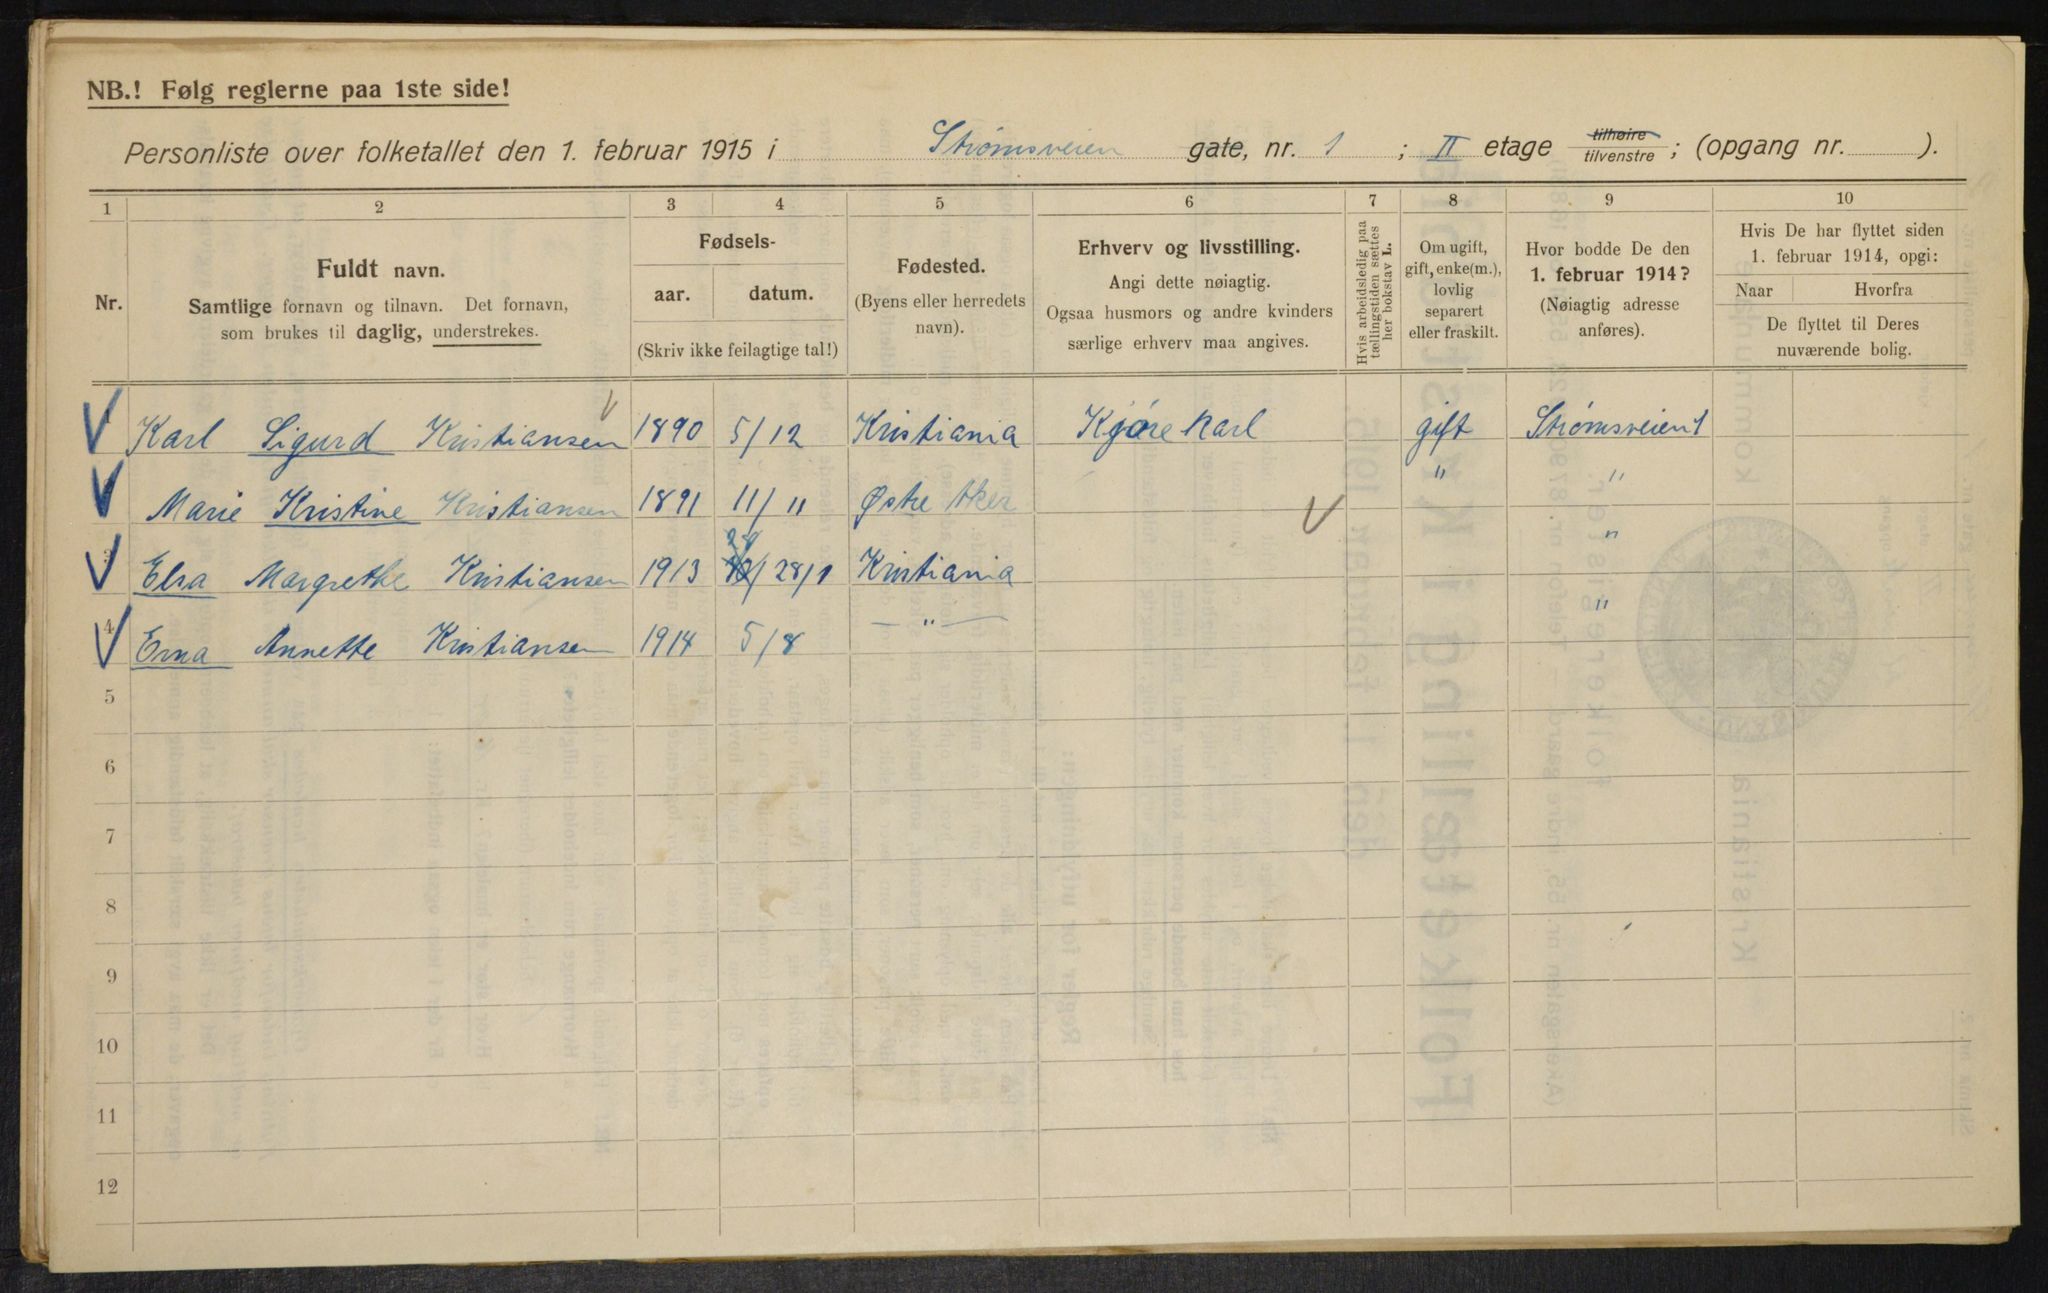 NB.! Følg reglerne paa 1ste side!
Personliste over folketallet den 1. februar 1915 i Strømsveien gate, nr. 1 ; II etage tilhøire tilvenstre ; (opgang nr. ).
1 2 3 4 5 6 7 8 9 10
Nr.
Fuldt navn.
Samtlige fornavn og tilnavn. Det fornavn,
som brukes til daglig, understrekes.
Fødsels-
aar. datum.
(Skriv ikke feilagtige tal!)
Fødested.
(Byens eller herredets
navn).
Erhverv og livsstilling.
Angi dette nøiagtig.
Ogsaa husmors og andre kvinders
særlige erhverv maa angives.
Hvis arbeidsledig paa
tællingstiden sættes
her bokstav L.
Om ugift,
gift, enke(m.),
lovlig
separert
eller fraskilt.
Hvor bodde De den
1. februar 1914?
(Nøiagtig adresse
anføres).
Hvis De har flyttet siden
1. februar 1914, opgi:
Naar Hvorfra
De flyttet til Deres
nuværende bolig.
Karl Sigurd Kristiansen 1890 5/12 Kristiania Kjørekarl gift Strømsveien 1
Marie Kristine Kristiansen 1891 11/11 Østre Aker " "
Elsa Margrethe Kristiansen 1913 28/1 Kristiania "
4 Erna Annette Kristiansen 1914 5/8 — " — "
5
6
7
8
9
10
11
12